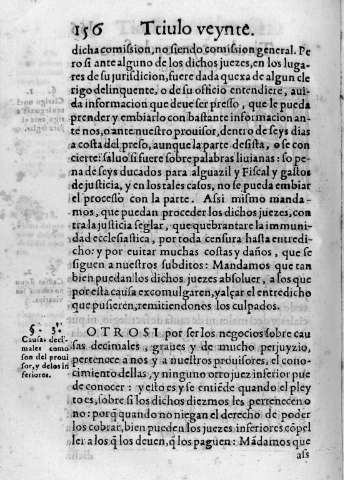 156 Titulo veynte.
dicha comission, no siendo comision general. Pe
ro si ante alguno de los dichos juezes, en los luga
res de su jurisdicion, fuere dada quexa de algun cle
rigo delinquente, o de su officio entendiere, aui
da informacion que deue ser presso, que le pueda
prender y embiarlo con bastante informacion an
te nos, o ante nuestro prouisor, dentro de seys dias
a costa del preso, aunque la parte desista, o se con
cierte: saluo si fuere sobre palabras liuianas: so pe
na de seys ducados para alguazil y Fiscal y gastos
de justicia, y en los tales casos, no se pueda embiar
el processo con la parte. Assi mismo manda-
mos, que puedan proceder los dichos juezes, con
tra la justicia seglar, que quebrantare la immuni
dad ecclesiastica, por toda censura hasta entredi
cho: y por euitar muchas costas y daños, que se
siguen a nuestros subditos: Mandamos que tan
bien puedan los dichos juezes absoluer, a los que
por esta causa excomulgaren, y alçar el entredicho
que pusieren, remitiendonos los culpados.
§. 3.
Causas deci
males cono
son del proui
sor, y delos in
feriores.
OTROSI por ser los negocios sobre cau
sas decimales, graues y de mucho perjuyzio,
pertenece a nos y a nuestros prouisores, el cono-
cimiento dellas, y ninguno otro juez inferior pue
de conocer: y esto es y se entiēde quando el pley
to es, sobre si los dichos diezmos les pertenecen o
no: porq̃ quando no niegan el derecho de poder
los cobrar, bien pueden los juezes inferiores cōpel
ler a los q̃ los deuen, q̃ los paguen: Mādamos que
ass